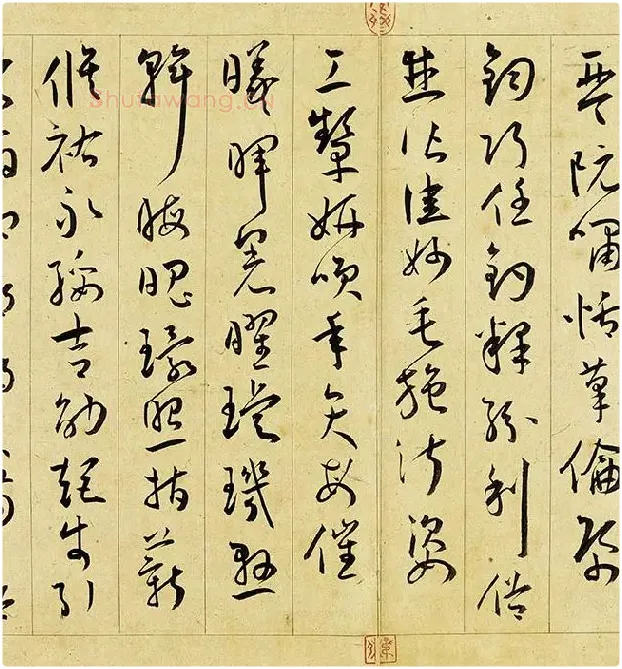 琴阮嘯恬筆倫紙
鈞巧任釣釋紛利俗
並皆佳妙毛施淑姿
工顰妍咲年矢每催
曦暉晃曜璇璣懸
斡晦魄環照指薪
修祜永綏吉劭矩步引
Shufawang.CN